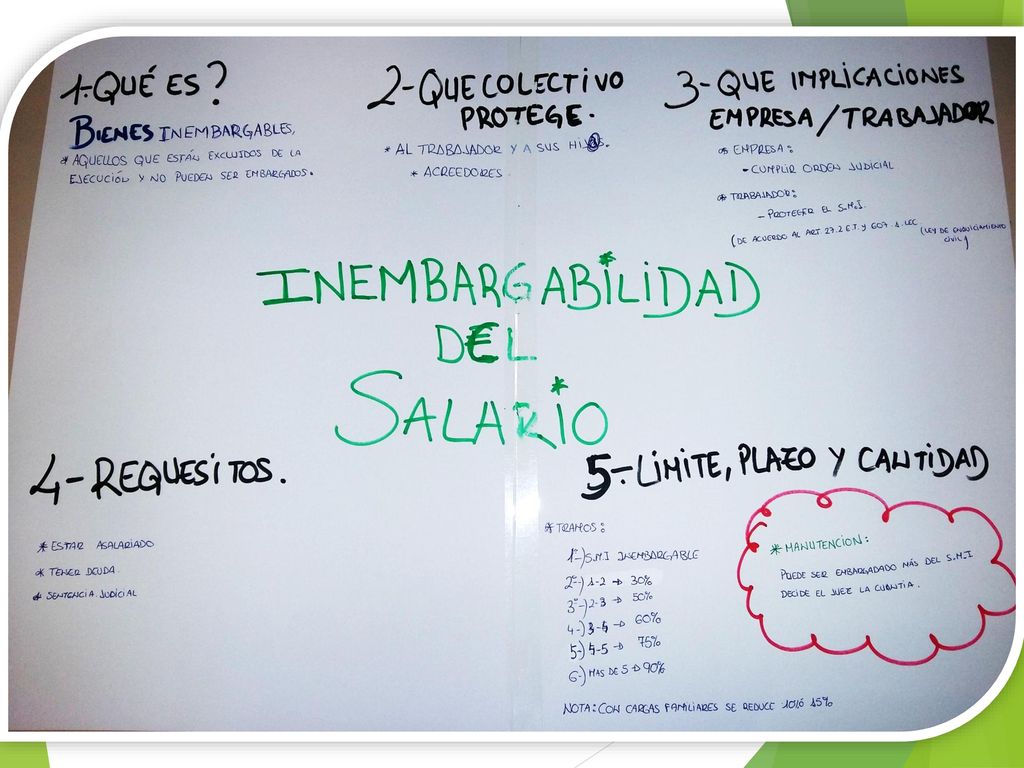 1-QUÉ ES?
BIENES INEMBARGABLES,
* AQUELLOS QUE ESTÁN EXCLUIDOS DE LA
EJECUCIÓN Y NO PUEDEN SER EMBARGADOS.
2-QUE COLECTIVO
PROTEGE.
* AL TRABAJADOR Y A SUS HIJOS.
* ACREEDORES
3-QUE IMPLICACIONES
EMPRESA/TRABAJADOR
* EMPRESA:
- CUMPLIR ORDEN JUDICIAL
* TRABAJADOR:
- PROTEGER EL S.M.I.
(DE ACUERDO AL ART. 27.2 E.T. Y 607.1. LEC (LEY DE ENJUICIAMIENTO
CIVIL)
INEMBARGABILIDAD
DEL
SALARIO
4-REQUESITOS.
* ESTAR ASALARIADO
* TENER DEUDA
* SENTENCIA JUDICIAL
5-LIMITE, PLAZO Y CANTIDAD
* TRAMOS:
1º-) S.M.I INEMBARGABLE
2º-) 1-2 → 30%
3º-) 2-3 → 50%
4-) 3-4 → 60%
5-) 4-5 → 75%
6-) MAS DE 5 → 90%
NOTA: CON CARGAS FAMILIARES SE REDUCE 10 ó 15%
* MANUTENCION:
PUEDE SER EMBARGADADO MÁS DEL S.M.I
DECIDE EL JUEZ LA CUANTIA.